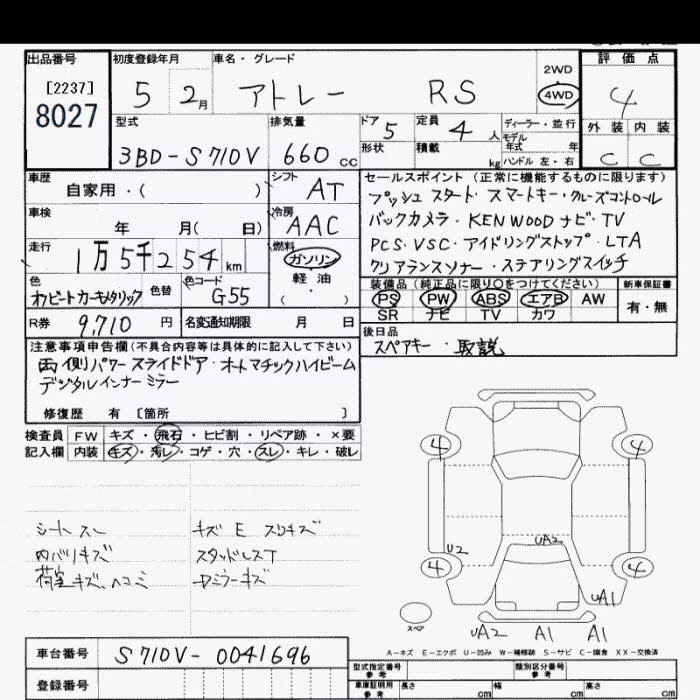 出品番号 初度登録年月 車名・グレード 評価点
[2237] 5 2月 アトレー RS 2WD 4WD 4
8027
型式 排気量 ドア 5 定員 4人 ディーラー・並行 外装 内装
3BD-S710V 660cc 形状 積載 kg モデル年式 年 C C
ハンドル 左・右
車歴 シフト セールスポイント（正常に機能するものに限ります）
自家用・（ ） AT プッシュスタート・スマートキー・クルーズコントロール
車検 冷房 バックカメラ・KENWOODナビ・TV
年 月（ 日） AAC PCS・VSC・アイドリングストップ・LTA
走行 燃料 クリアランスソナー・ステアリングスイッチ
1万5千254km ガソリン
軽油
（ ）
色 色替 色コード 装備品（純正品に限り○をつけてください） 新車保証書
G55 PS PW ABS エアB AW 有・無
SR ナビ TV カワ
R券 9,710円 名変通知期限 月 日 後日品
注意事項申告欄（不具合内容等は具体的に記入して下さい） スペアキー・取説
両側パワースライドドア・オートマチックハイビーム
デジタルインナーミラー
修復歴 有 〔箇所 〕
検査員 FW キズ・飛石・ヒビ割・リペア跡・×要
記入欄 内装 キズ・汚レ・コゲ・穴・スレ・キレ・破レ
4 4
シートスレ キズE スリキズ
内バリキズ スタッドレスT
荷室キズ、ヘコミ
U2 UA2
4 4
UA1
スペア
UA2 A1 A1
A-キズ E-エクボ U-凹み W-補修跡 S-サビ C-腐食 XX-交換済
車台番号 S710V-0041696
型式指定番号 参考 類別区分番号 参考
登録番号 車庫証明用 参考 長さ cm 幅 cm 高さ cm